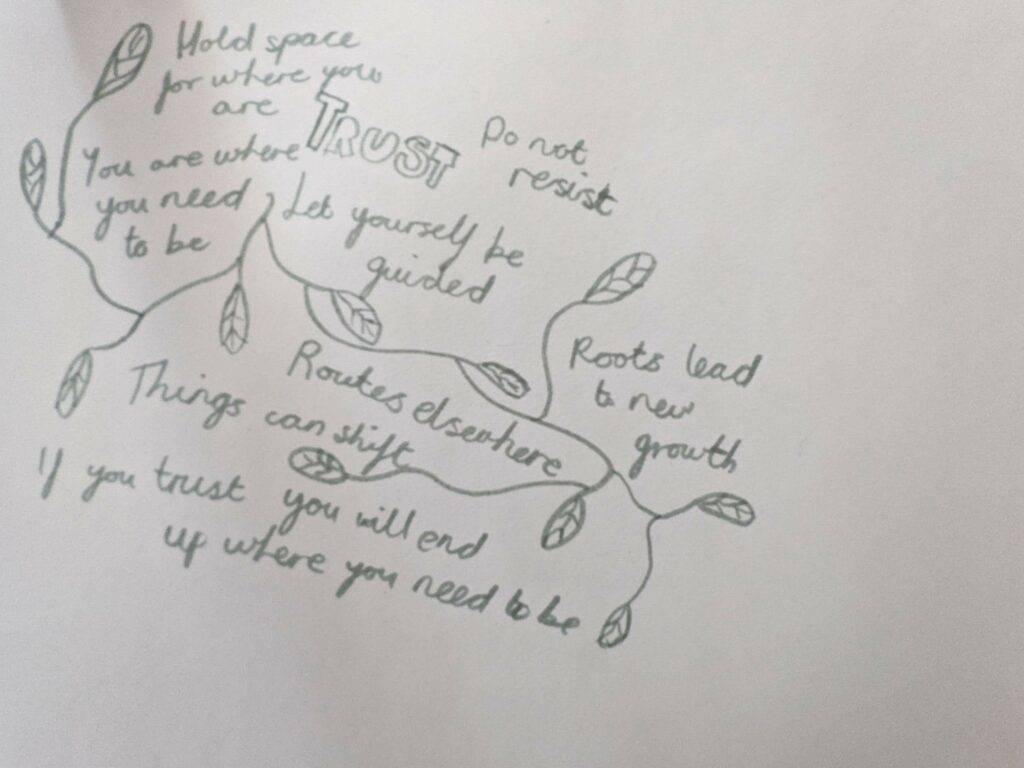 Hold space
for where you
are
TRUST
Do not
resist
You are where
you need
to be
Let yourself be
guided
Roots lead
to new
growth
Routes elsewhere
Things can shift
If you trust you will end
up where you need to be